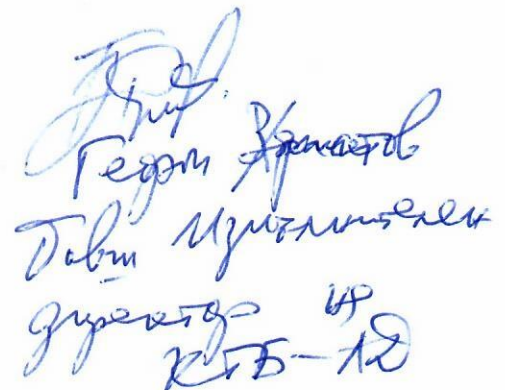 Георги Христов
Бивш Изпълнителен
директор на
КТБ-АД